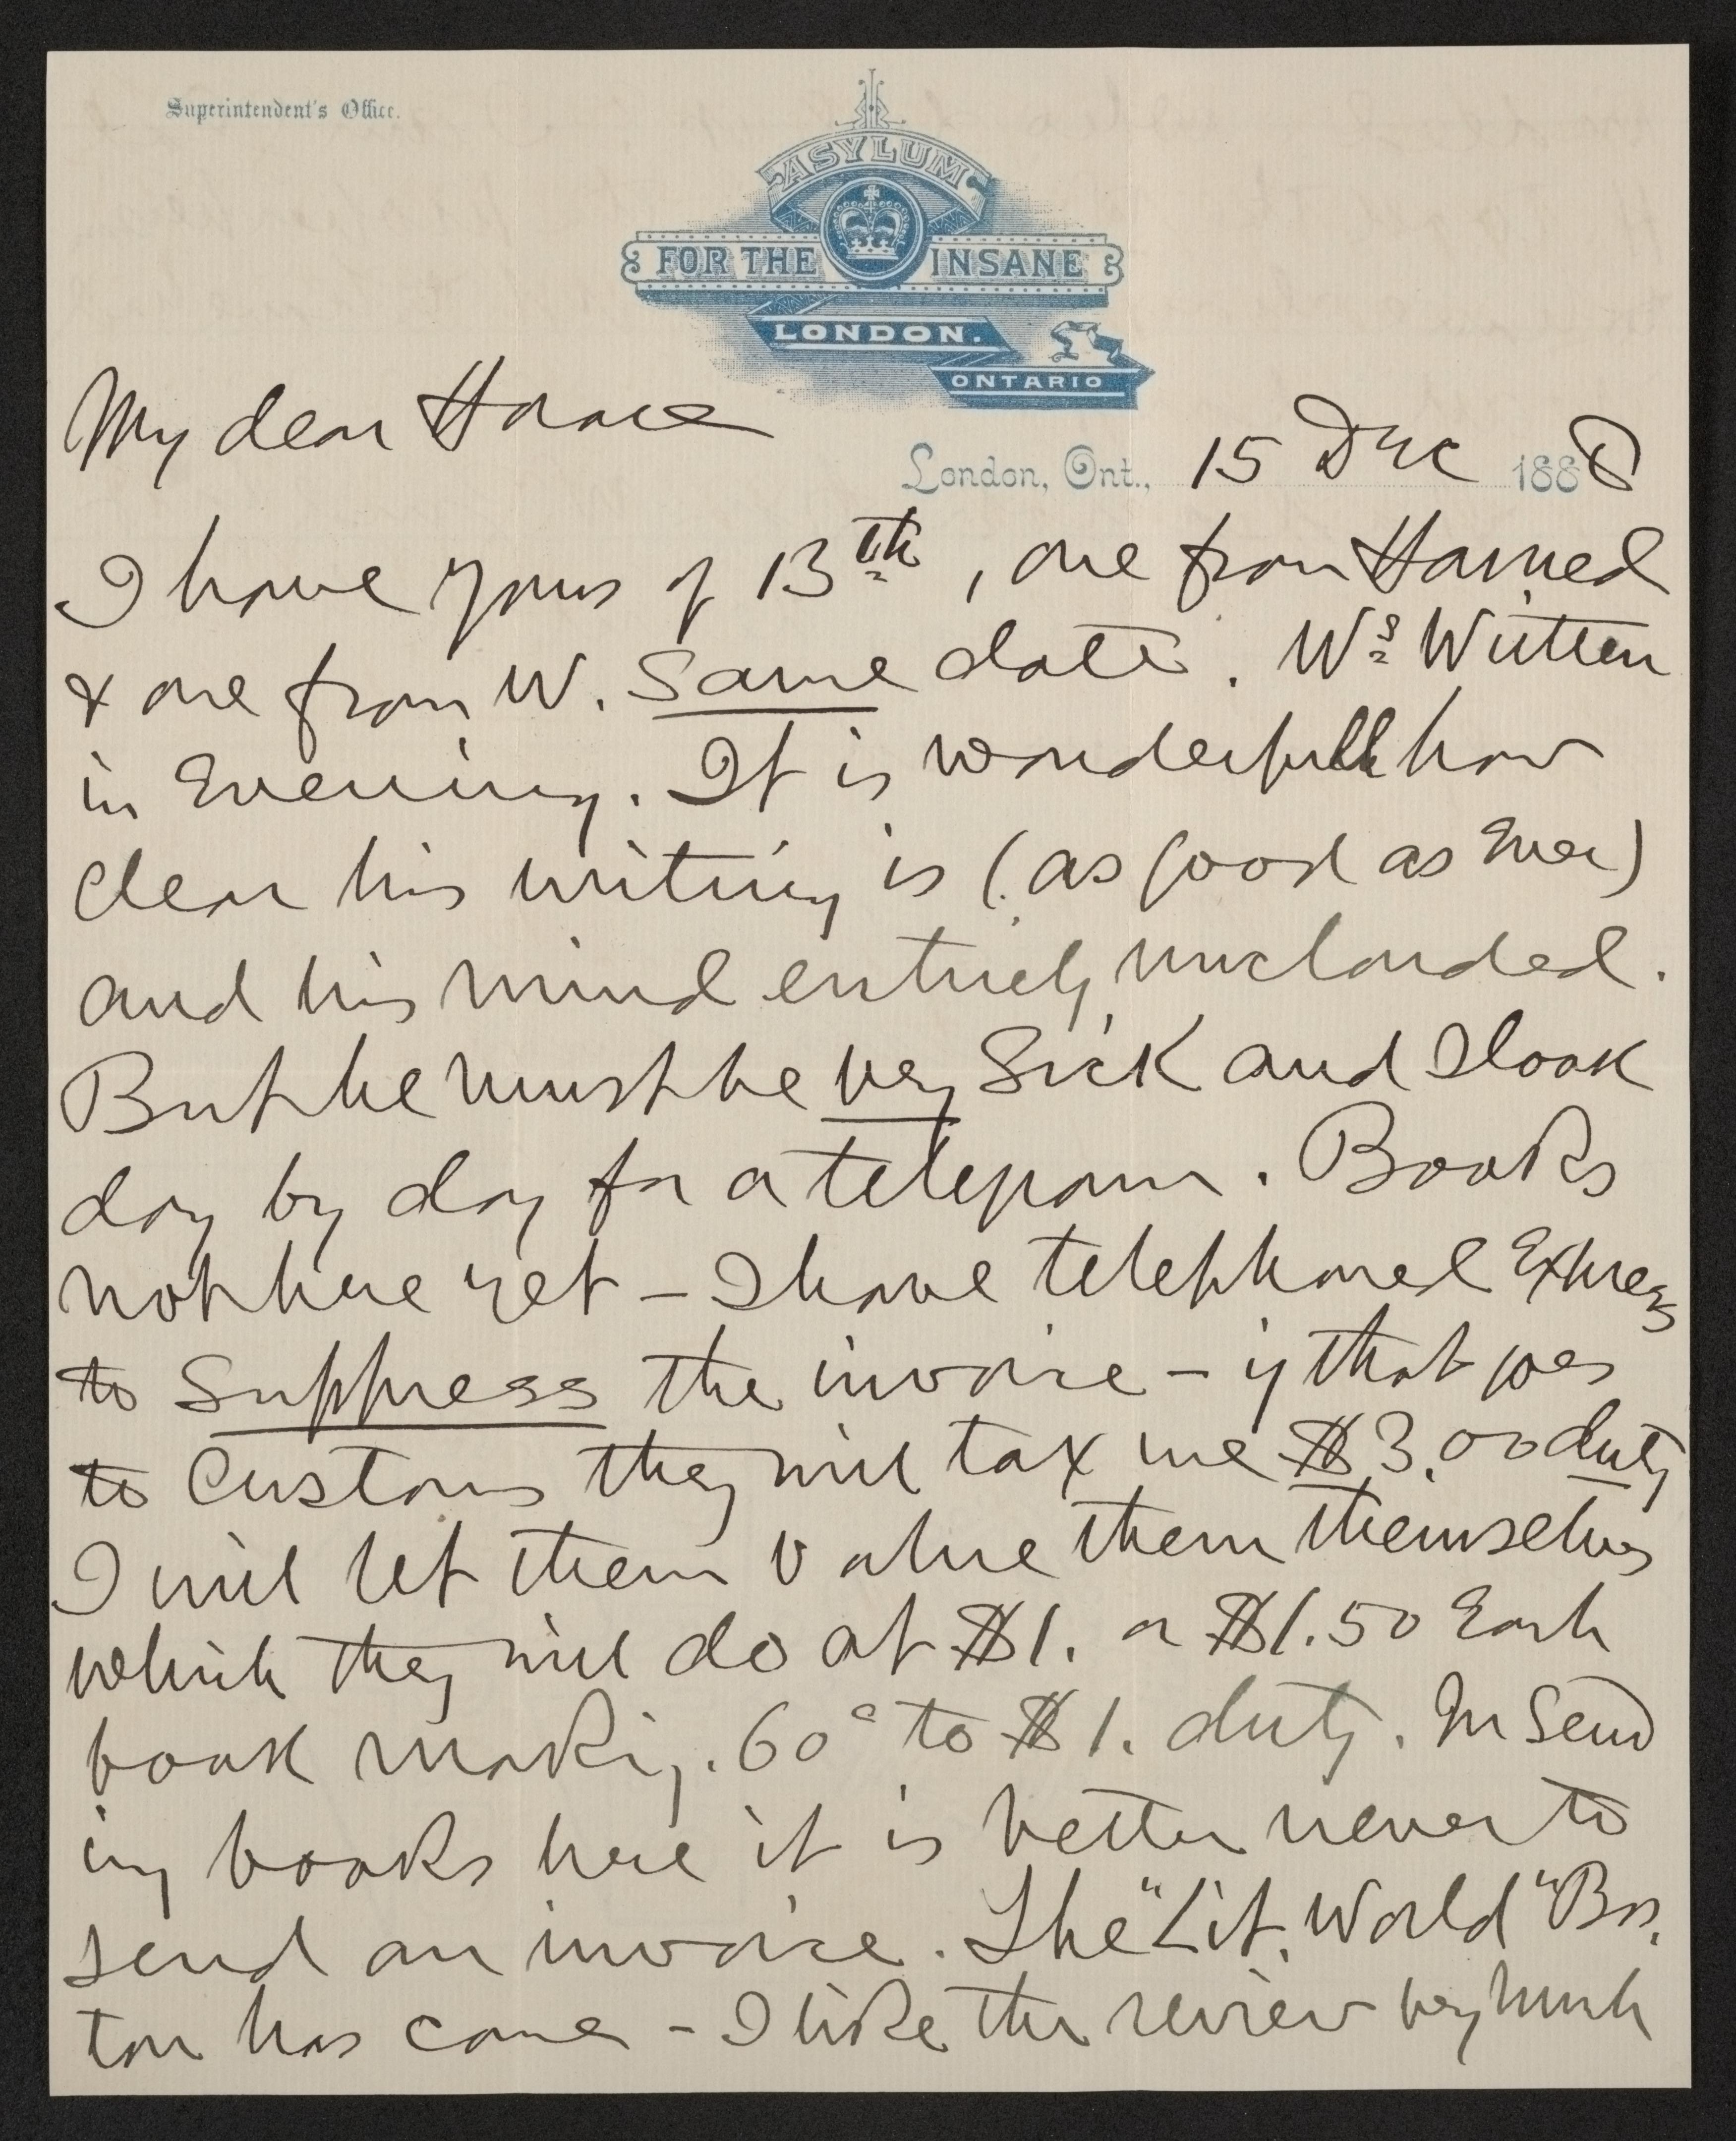 Superintendent's Office.
ASYLUM
FOR THE INSANE
LONDON.
ONTARIO
My dear Horace
London, Ont., 15 Dec 1888
I have yours of 13th, one from Harned
& one from W. same date. W's Written
in Evening. It is wonderfull how
clear his writing is (as good as Ever)
and his mind entirely unclouded.
But he must be very sick and I look
day by day for a telegram. Books
not here yet – I have telephoned Express
to suppress the invoice – if that goes
to Customs they will tax me $3.00 duty
I will let them value them themselves
which they will do at $1. or $1.50 Each
book making. 60c to $1. duty. In Send
ing books here it is better never to
send an invoice. The "Lit. World" Bos.
ton has come – I like the review very much